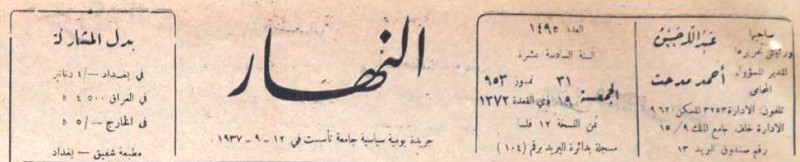 صاحبها
ورئيس تحريرها
عبد الله حسن
المدير المسؤول
المحامي
أحمد مدحت
تلفون: الادارة ٣٢٥٣ المسكن ٩٦٢
الادارة خلف جامع الملك ٩ / ١٥
رقم صندوق البريد ١٣
العدد ١٤٩٥
السنة السادسة عشرة
الجمعة ٣١ تموز ٩٥٣
١٩ ذي القعدة ١٣٧٢
ثمن النسخة ١٢ فلسا
مسجلة بدائرة البريد برقم (١٠٤)
النهار
جريدة يومية سياسية جامعة تأسست في ١٢ - ٩ - ١٩٣٧
بدل المشاركة
في بغداد -/٤ دنانير
في العراق ٤٫٥٠٠ د
في الخارج -/٥ د
مطبعة شفيق - بغداد